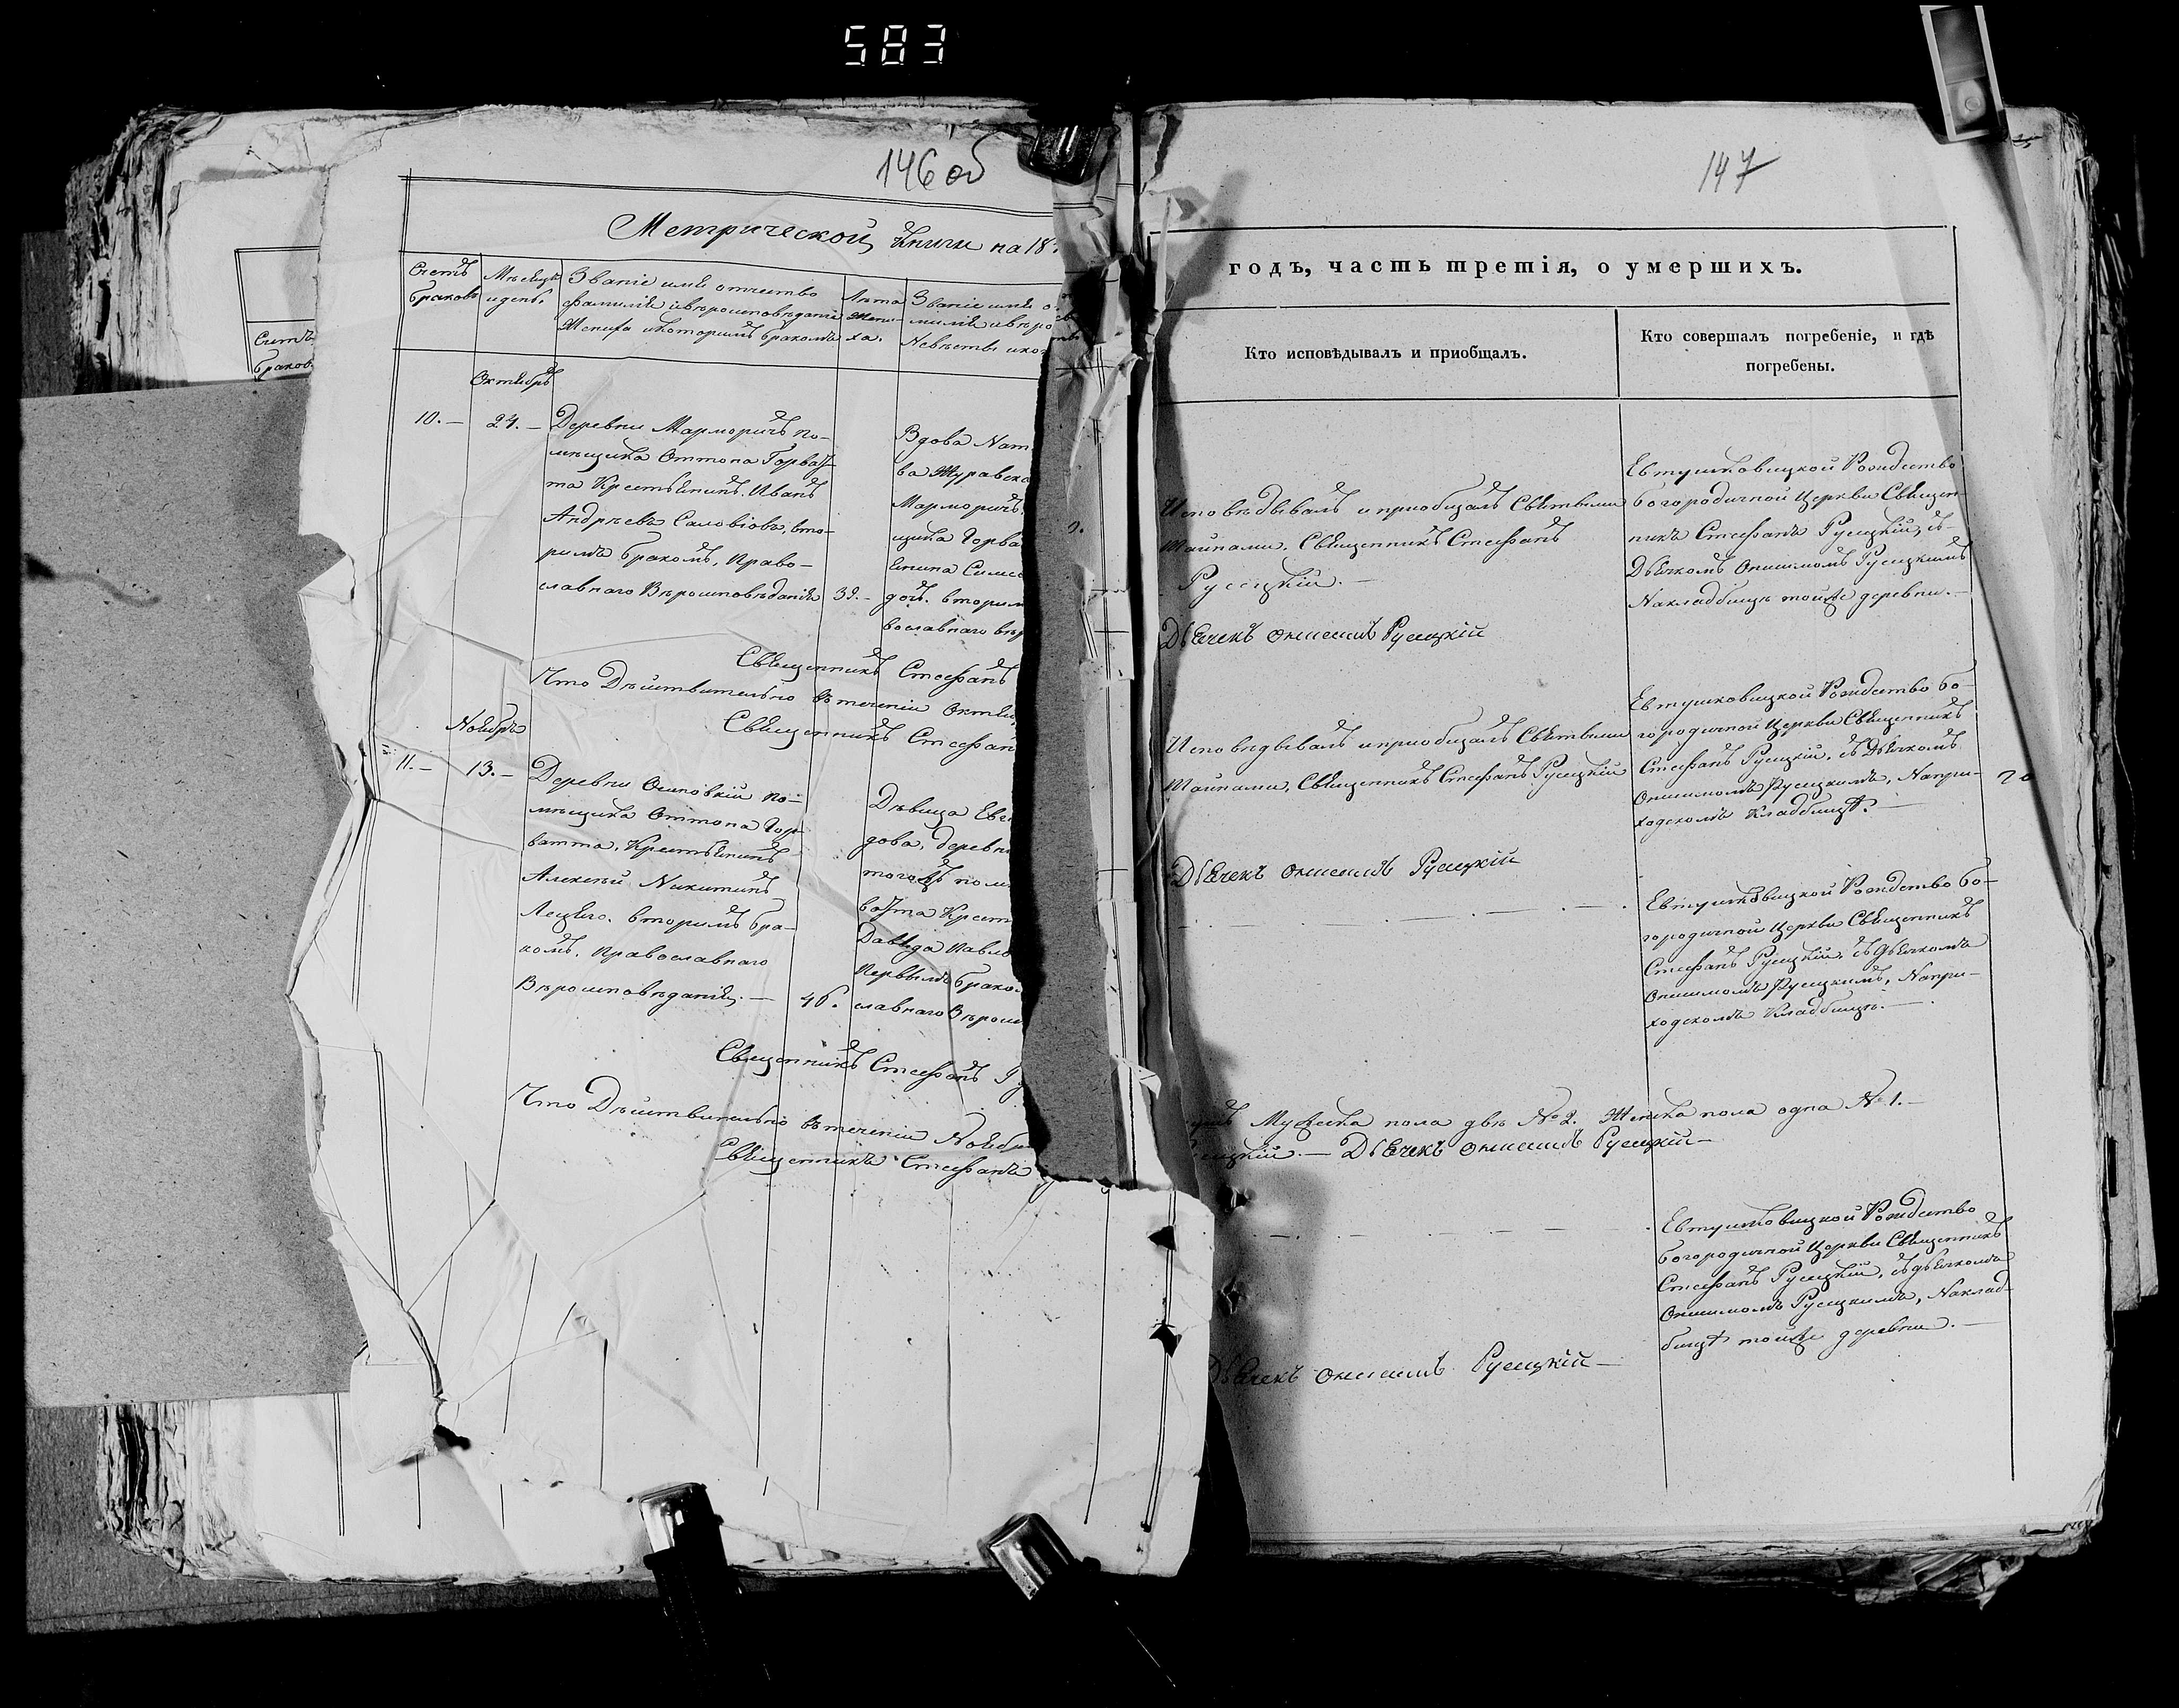 583
146 об
Метрической Книги на 18
Счетъ
браковъ
Мѣсяцъ
и день.
Званіе имя отчество
фамилія и вѣроисповѣданіе
Жениха и которымъ бракомъ
Лѣта
Жени-
ха.
Званіе имя о
милія и вѣро
Невѣсты и ко
Счетъ
браков
Октябрь
10.— 24.— Деревни Марморичъ по-
мѣщика Оттона Горват-
та Крестьянинъ Иванъ
Андрѣевъ Саловіовъ, вто-
рымъ бракомъ, Право-
славнаго Вѣроисповѣданія 39.—
Вдова Нат
ва Журавска
Марморичъ,
щика Горва
янина Симе
дочь. вторым
вославнаго вѣр
Священникъ Стефанъ
Что Дѣйствительно въ теченіи Октяб
Священникъ Стефан
Ноябрь
11.— 13.— Деревни Осиповки по-
мѣщика Оттона Гор-
ватта, Крестьянинъ
Алексѣй Никитинъ
Лецko. вторымъ бра-
комъ, Православнаго
Вѣроисповѣданія.— 46.
Дѣвица Евг
дова, деревн
тогожъ пом
ватта Крест
Давыда Павло
первымъ брако
славнаго Вѣрои
Священникъ Стефанъ Р
Что Дѣйствительно въ теченіи Ноябр
Священникъ Стефанъ
147
годъ, часть третія, о умершихъ.
Кто исповѣдывалъ и приобщалъ.
Кто совершалъ погребеніе, и гдѣ
погребены.
Исповѣдывалъ и приобщалъ Святыми
Тайнами. Священникъ Стефанъ
Русецкій.—
Дьячекъ Онисимъ Русецкій
Евтушковицкой Рождество
богородичной Церкви Священ-
никъ Стефанъ Русецкій, съ
Дьячкомъ Онисимомъ Русецкимъ
На кладбищѣ тойже деревни.—
Исповѣдывалъ и приобщалъ Святыми
Тайнами, Священникъ Стефанъ Русецкій
Дьячекъ Онисимъ Русецкій
Евтушковицкой Рождество бо-
городичной Церкви Священникъ
Стефанъ Русецкій, съ Дьячкомъ
Онисимомъ Русецкимъ, На при-
ходскомъ Кладбищѣ.—
Евтушковицкой Рождество бо-
городичной Церкви Священникъ
Стефанъ Русецкій, съ дьячкомъ
Онисимомъ Русецкимъ, На при-
ходскомъ Кладбищѣ.—
Мужеска пола двѣ № 2. Женска пола одна № 1.—
Дьячекъ Онисимъ Русецкій—
Евтушковицкой Рождество
богородичной Церкви Священникъ
Стефанъ Русецкій, съ дьячкомъ
Онисимомъ Русецкимъ, На клад-
бищѣ тойже деревни.—
Дьячекъ Онисимъ Русецкій—